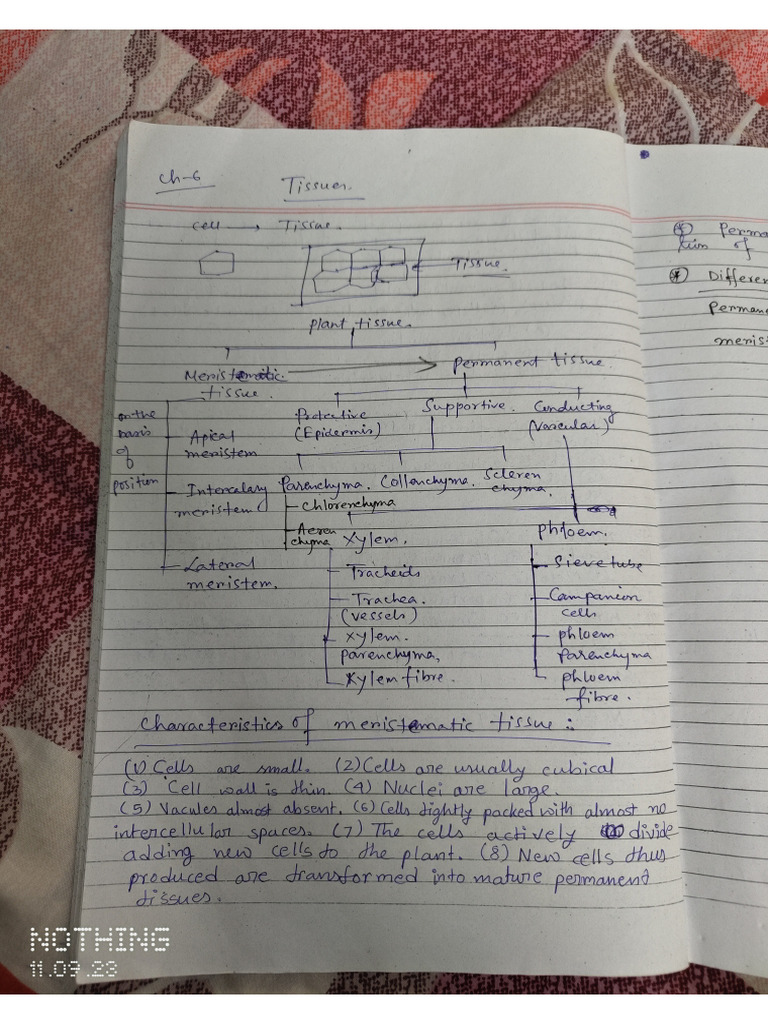 Ch-6 Tissues.
Cell → Tissue.
Tissue.
Plant tissue.
Meristematic tissue.
Permanent tissue
on the basis of position
Apical meristem
Intercalary meristem
Lateral meristem.
Protective (Epidermis)
Supportive.
Conducting (Vascular)
Parenchyma. Collenchyma. Scleren chyma.
Chlorenchyma
Aeren chyma
Xylem.
Tracheids
Trachea. (vessels)
Xylem. parenchyma,
Xylem fibre.
Phloem.
Sieve tube
Companion cells
phloem Parenchyma
phloem fibre.
Characteristics of meristematic tissue :
(1) Cells are small. (2) Cells are usually cubical
(3) Cell wall is thin. (4) Nuclei are large.
(5) Vacules almost absent. (6) Cells tightly packed with almost no
intercellular spaces. (7) The cells actively divide
adding new cells to the plant. (8) New cells thus
produced are transformed into mature permanent
tissues.
of
NOTHING
11.09.23